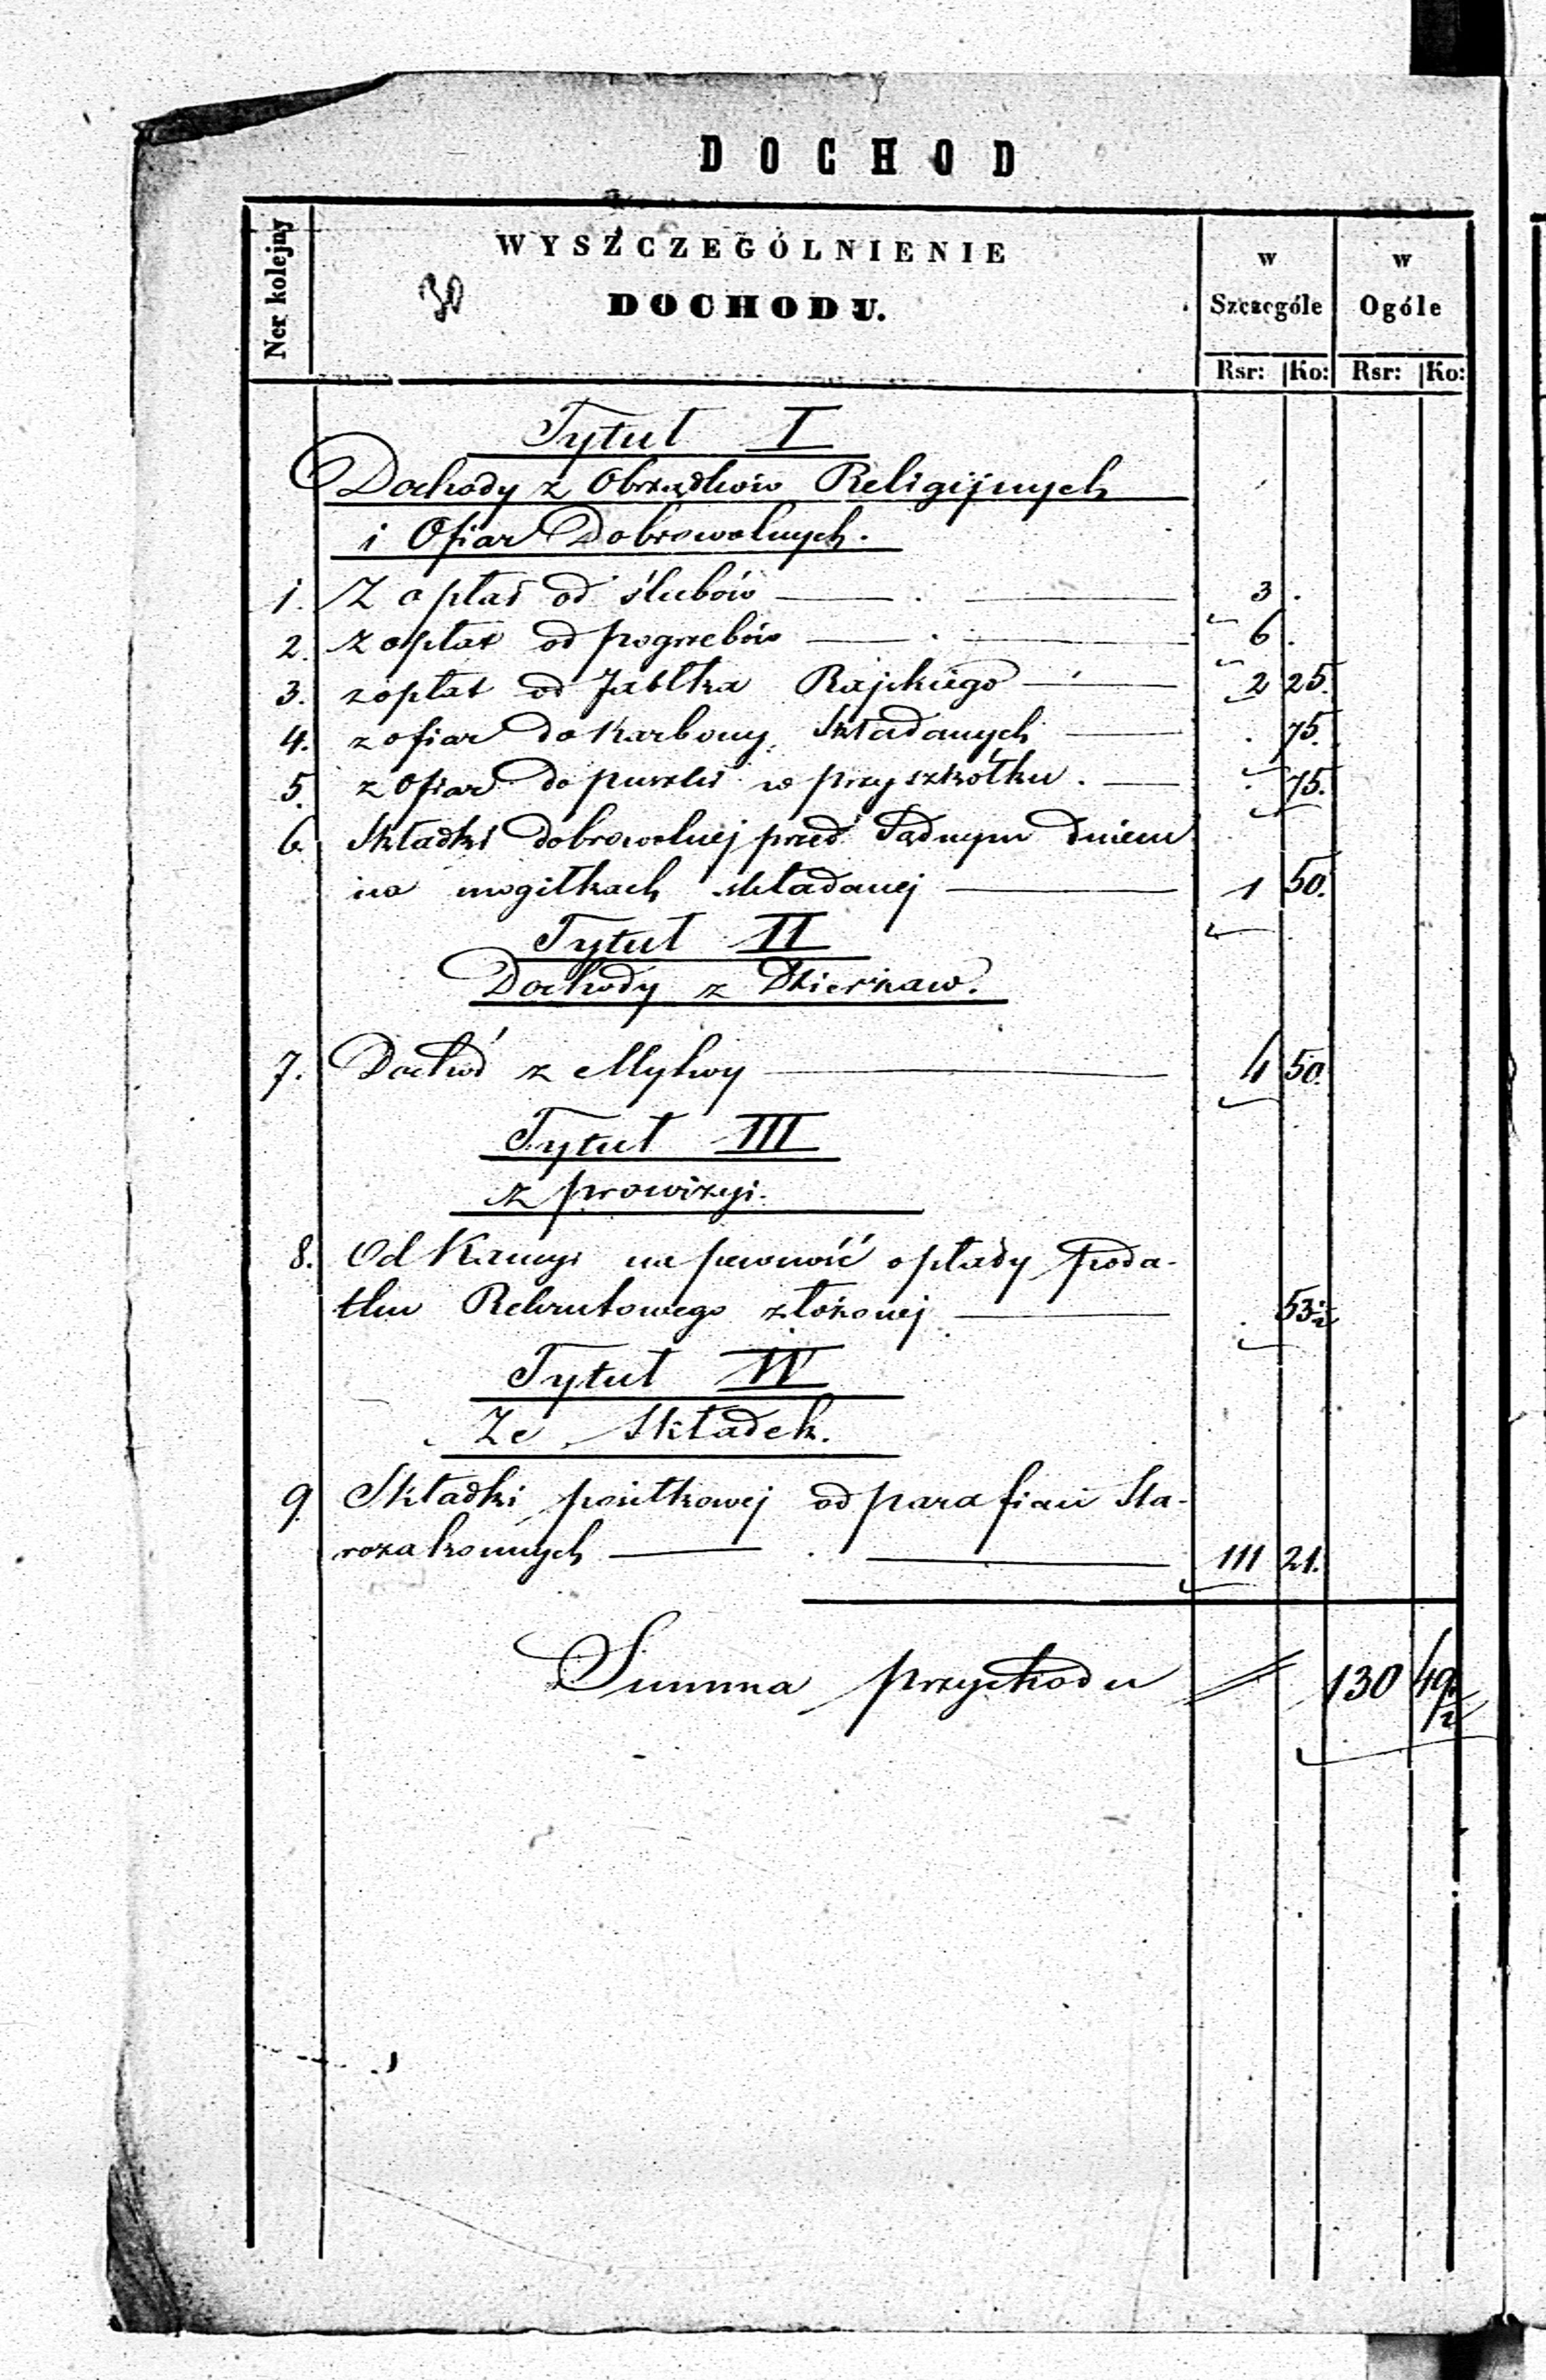 DOCHOD
Ner kolejny
WYSZCZEGÓLNIENIE
DOCHODU.
30
w Szczególe
w Ogóle
Rsr: Ko: Rsr: Ko:
Tytuł I
Dochody z Obrządków Religijnych
i Ofiar Dobrowolnych.
1. Z opłat od ślubów 3 .
2. z opłat od pogrzebów 6 .
3. z opłat od Jabłka Rajskiego 2 25.
4. z ofiar do Karbony Składanych . 75.
5. z Ofiar do puszki w przyszkółku . 75.
6. Składki dobrowolnej przed Sądnym dniem
na mogiłkach składanej 1 50.
Tytuł II
Dochody z Dzierżaw.
7. Dochód z Mykwy 4 50.
Tytuł III
z prowizyi.
8. Od Kaucyi na pewność opłady poda-
tku Rekrutowego złożonej . 53½
Tytuł IV
Ze Składek.
9 Składki posiłkowej od parafian Sta-
rozakonnych 111 21.
Summa przychodu 130 49½